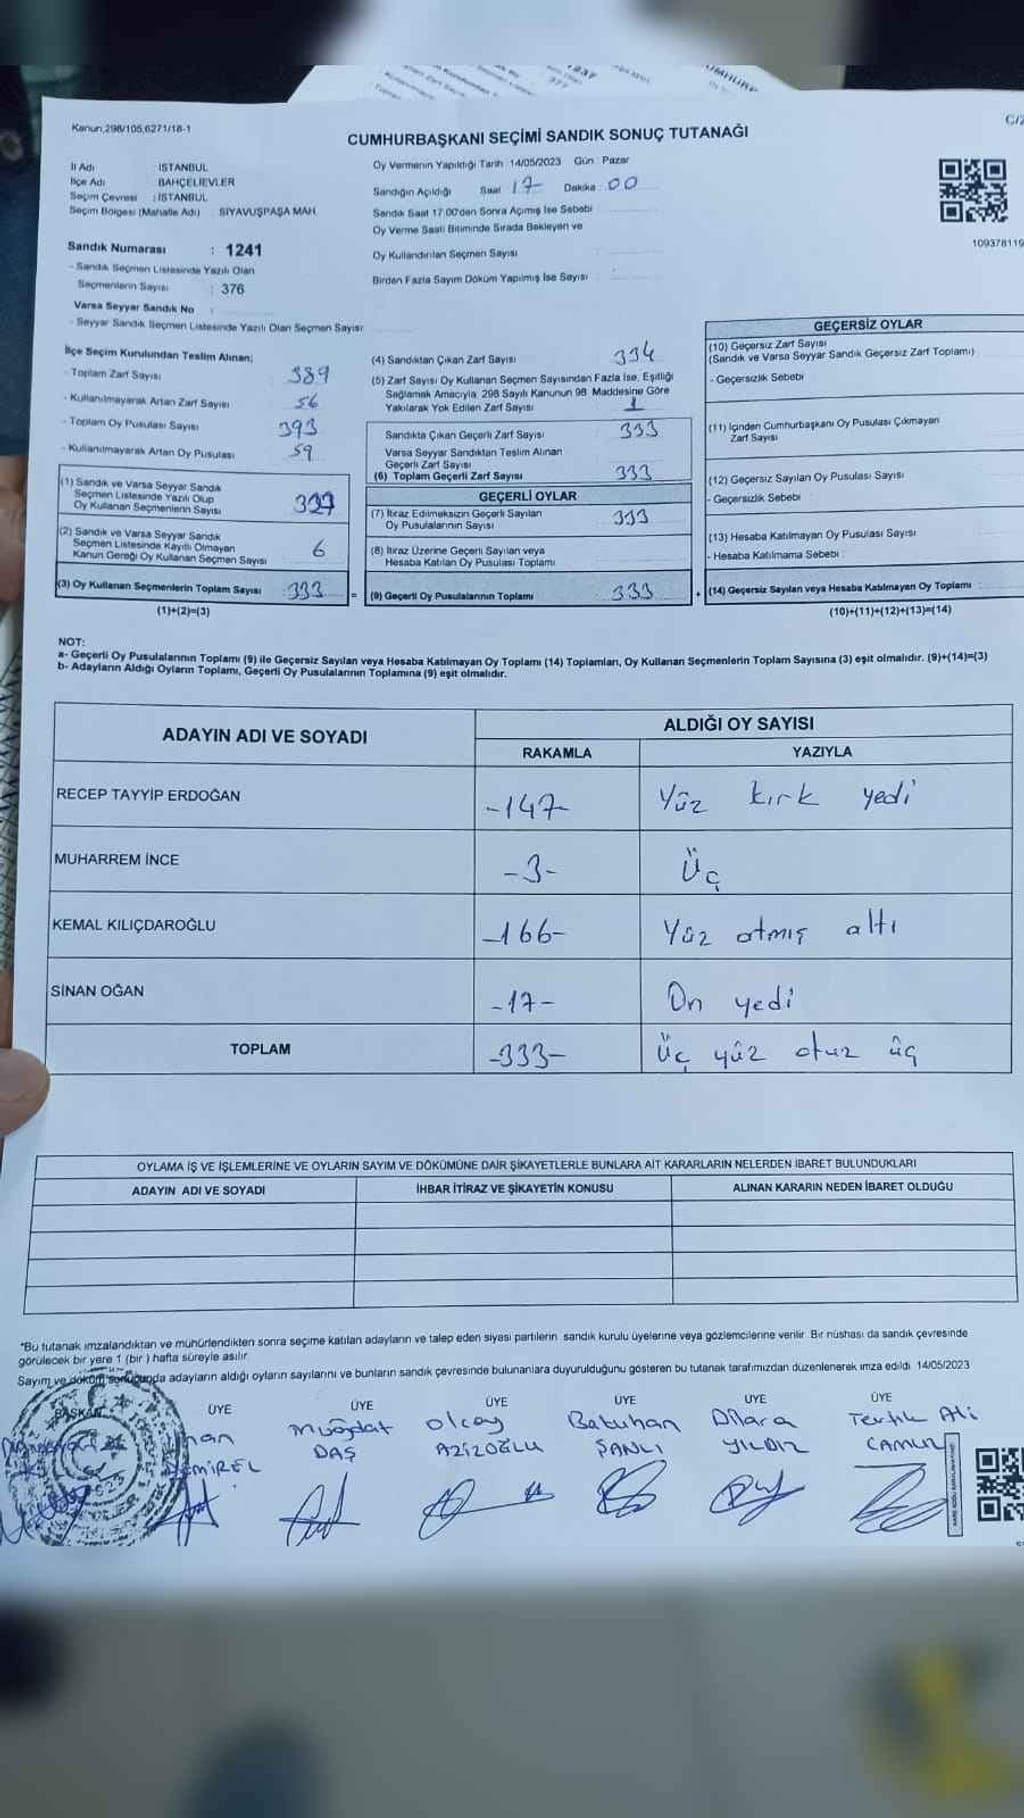 Kanun,298/105,6271/18-1
CUMHURBAŞKANI SEÇİMİ SANDIK SONUÇ TUTANAĞI
İl Adı İSTANBUL
İlçe Adı BAHÇELİEVLER
Seçim Çevresi : İSTANBUL
Seçim Bölgesi (Mahalle Adı) : SİYAVUŞPAŞA MAH.
Sandık Numarası : 1241
- Sandık Seçmen Listesinde Yazılı Olan
Seçmenlerin Sayısı : 376
Varsa Seyyar Sandık No :
- Seyyar Sandık Seçmen Listesinde Yazılı Olan Seçmen Sayısı
Oy Vermenin Yapıldığı Tarih : 14/05/2023 Gün : Pazar
Sandığın Açıldığı Saat 17 Dakika : 00
Sandık Saat 17:00'den Sonra Açımış İse Sebebi
Oy Verme Saati Bitiminde Sırada Bekleyen ve
Oy Kullandırılan Seçmen Sayısı
Birden Fazla Sayım Döküm Yapılmış İse Sayısı
109378119
İlçe Seçim Kurulundan Teslim Alınan;
- Toplam Zarf Sayısı 389
- Kullanılmayarak Artan Zarf Sayısı 56
- Toplam Oy Pusulası Sayısı 393
- Kullanılmayarak Artan Oy Pusulası 59
(1) Sandık ve Varsa Seyyar Sandık
Seçmen Listesinde Yazılı Olup
Oy Kullanan Seçmenlerin Sayısı 327
(2) Sandık ve Varsa Seyyar Sandık
Seçmen Listesinde Kayıtlı Olmayan
Kanun Gereği Oy Kullanan Seçmen Sayısı 6
(3) Oy Kullanan Seçmenlerin Toplam Sayısı : 333 =
(1)+(2)=(3)
(4) Sandıktan Çıkan Zarf Sayısı 334
(5) Zarf Sayısı Oy Kullanan Seçmen Sayısından Fazla İse, Eşitliği
Sağlamak Amacıyla, 298 Sayılı Kanunun 98. Maddesine Göre
Yakılarak Yok Edilen Zarf Sayısı 1
Sandıkta Çıkan Geçerli Zarf Sayısı 333
Varsa Seyyar Sandıktan Teslim Alınan
Geçerli Zarf Sayısı
(6) Toplam Geçerli Zarf Sayısı 333
GEÇERLİ OYLAR
(7) İtiraz Edilmeksizin Geçerli Sayılan
Oy Pusulalarının Sayısı 333
(8) İtiraz Üzerine Geçerli Sayılan veya
Hesaba Katılan Oy Pusulası Toplamı
(9) Geçerli Oy Pusulalarının Toplamı 333 +
GEÇERSİZ OYLAR
(10) Geçersiz Zarf Sayısı
(Sandık ve Varsa Seyyar Sandık Geçersiz Zarf Toplamı)
- Geçersizlik Sebebi
(11) İçinden Cumhurbaşkanı Oy Pusulası Çıkmayan
Zarf Sayısı
(12) Geçersiz Sayılan Oy Pusulası Sayısı
- Geçersizlik Sebebi
(13) Hesaba Katılmayan Oy Pusulası Sayısı
- Hesaba Katılmama Sebebi :
(14) Geçersiz Sayılan veya Hesaba Katılmayan Oy Toplamı
(10)+(11)+(12)+(13)=(14)
NOT:
a- Geçerli Oy Pusulalarının Toplamı (9) ile Geçersiz Sayılan veya Hesaba Katılmayan Oy Toplamı (14) Toplamları, Oy Kullanan Seçmenlerin Toplam Sayısına (3) eşit olmalıdır. (9)+(14)=(3)
b- Adayların Aldığı Oyların Toplamı, Geçerli Oy Pusulalarının Toplamına (9) eşit olmalıdır.
ADAYIN ADI VE SOYADI
ALDIĞI OY SAYISI
RAKAMLA YAZIYLA
RECEP TAYYİP ERDOĞAN -147- Yüz kırk yedi
MUHARREM İNCE -3- Üç
KEMAL KILIÇDAROĞLU -166- Yüz atmış altı
SİNAN OĞAN -17- On yedi
TOPLAM -333- Üç yüz otuz üç
OYLAMA İŞ VE İŞLEMLERİNE VE OYLARIN SAYIM VE DÖKÜMÜNE DAİR ŞİKAYETLERLE BUNLARA AİT KARARLARIN NELERDEN İBARET BULUNDUKLARI
ADAYIN ADI VE SOYADI İHBAR İTİRAZ VE ŞİKAYETİN KONUSU ALINAN KARARIN NEDEN İBARET OLDUĞU
*Bu tutanak imzalandıktan ve mühürlendikten sonra seçime katılan adayların ve talep eden siyasi partilerin sandık kurulu üyelerine veya gözlemcilerine verilir. Bir nüshası da sandık çevresinde
görülecek bir yere 1 (bir ) hafta süreyle asılır.
Sayım ve döküm sonucunda adayların aldığı oyların sayılarını ve bunların sandık çevresinde bulunanlara duyurulduğunu gösteren bu tutanak tarafımızdan düzenlenerek imza edildi. 14/05/2023
BAŞKAN ÜYE ÜYE ÜYE ÜYE ÜYE ÜYE
Müğdat Olcay Batuhan Dilara Tevfik Ali
DEMİREL DAŞ AZİZOĞLU ŞANLI YILDIZ CAMUZ